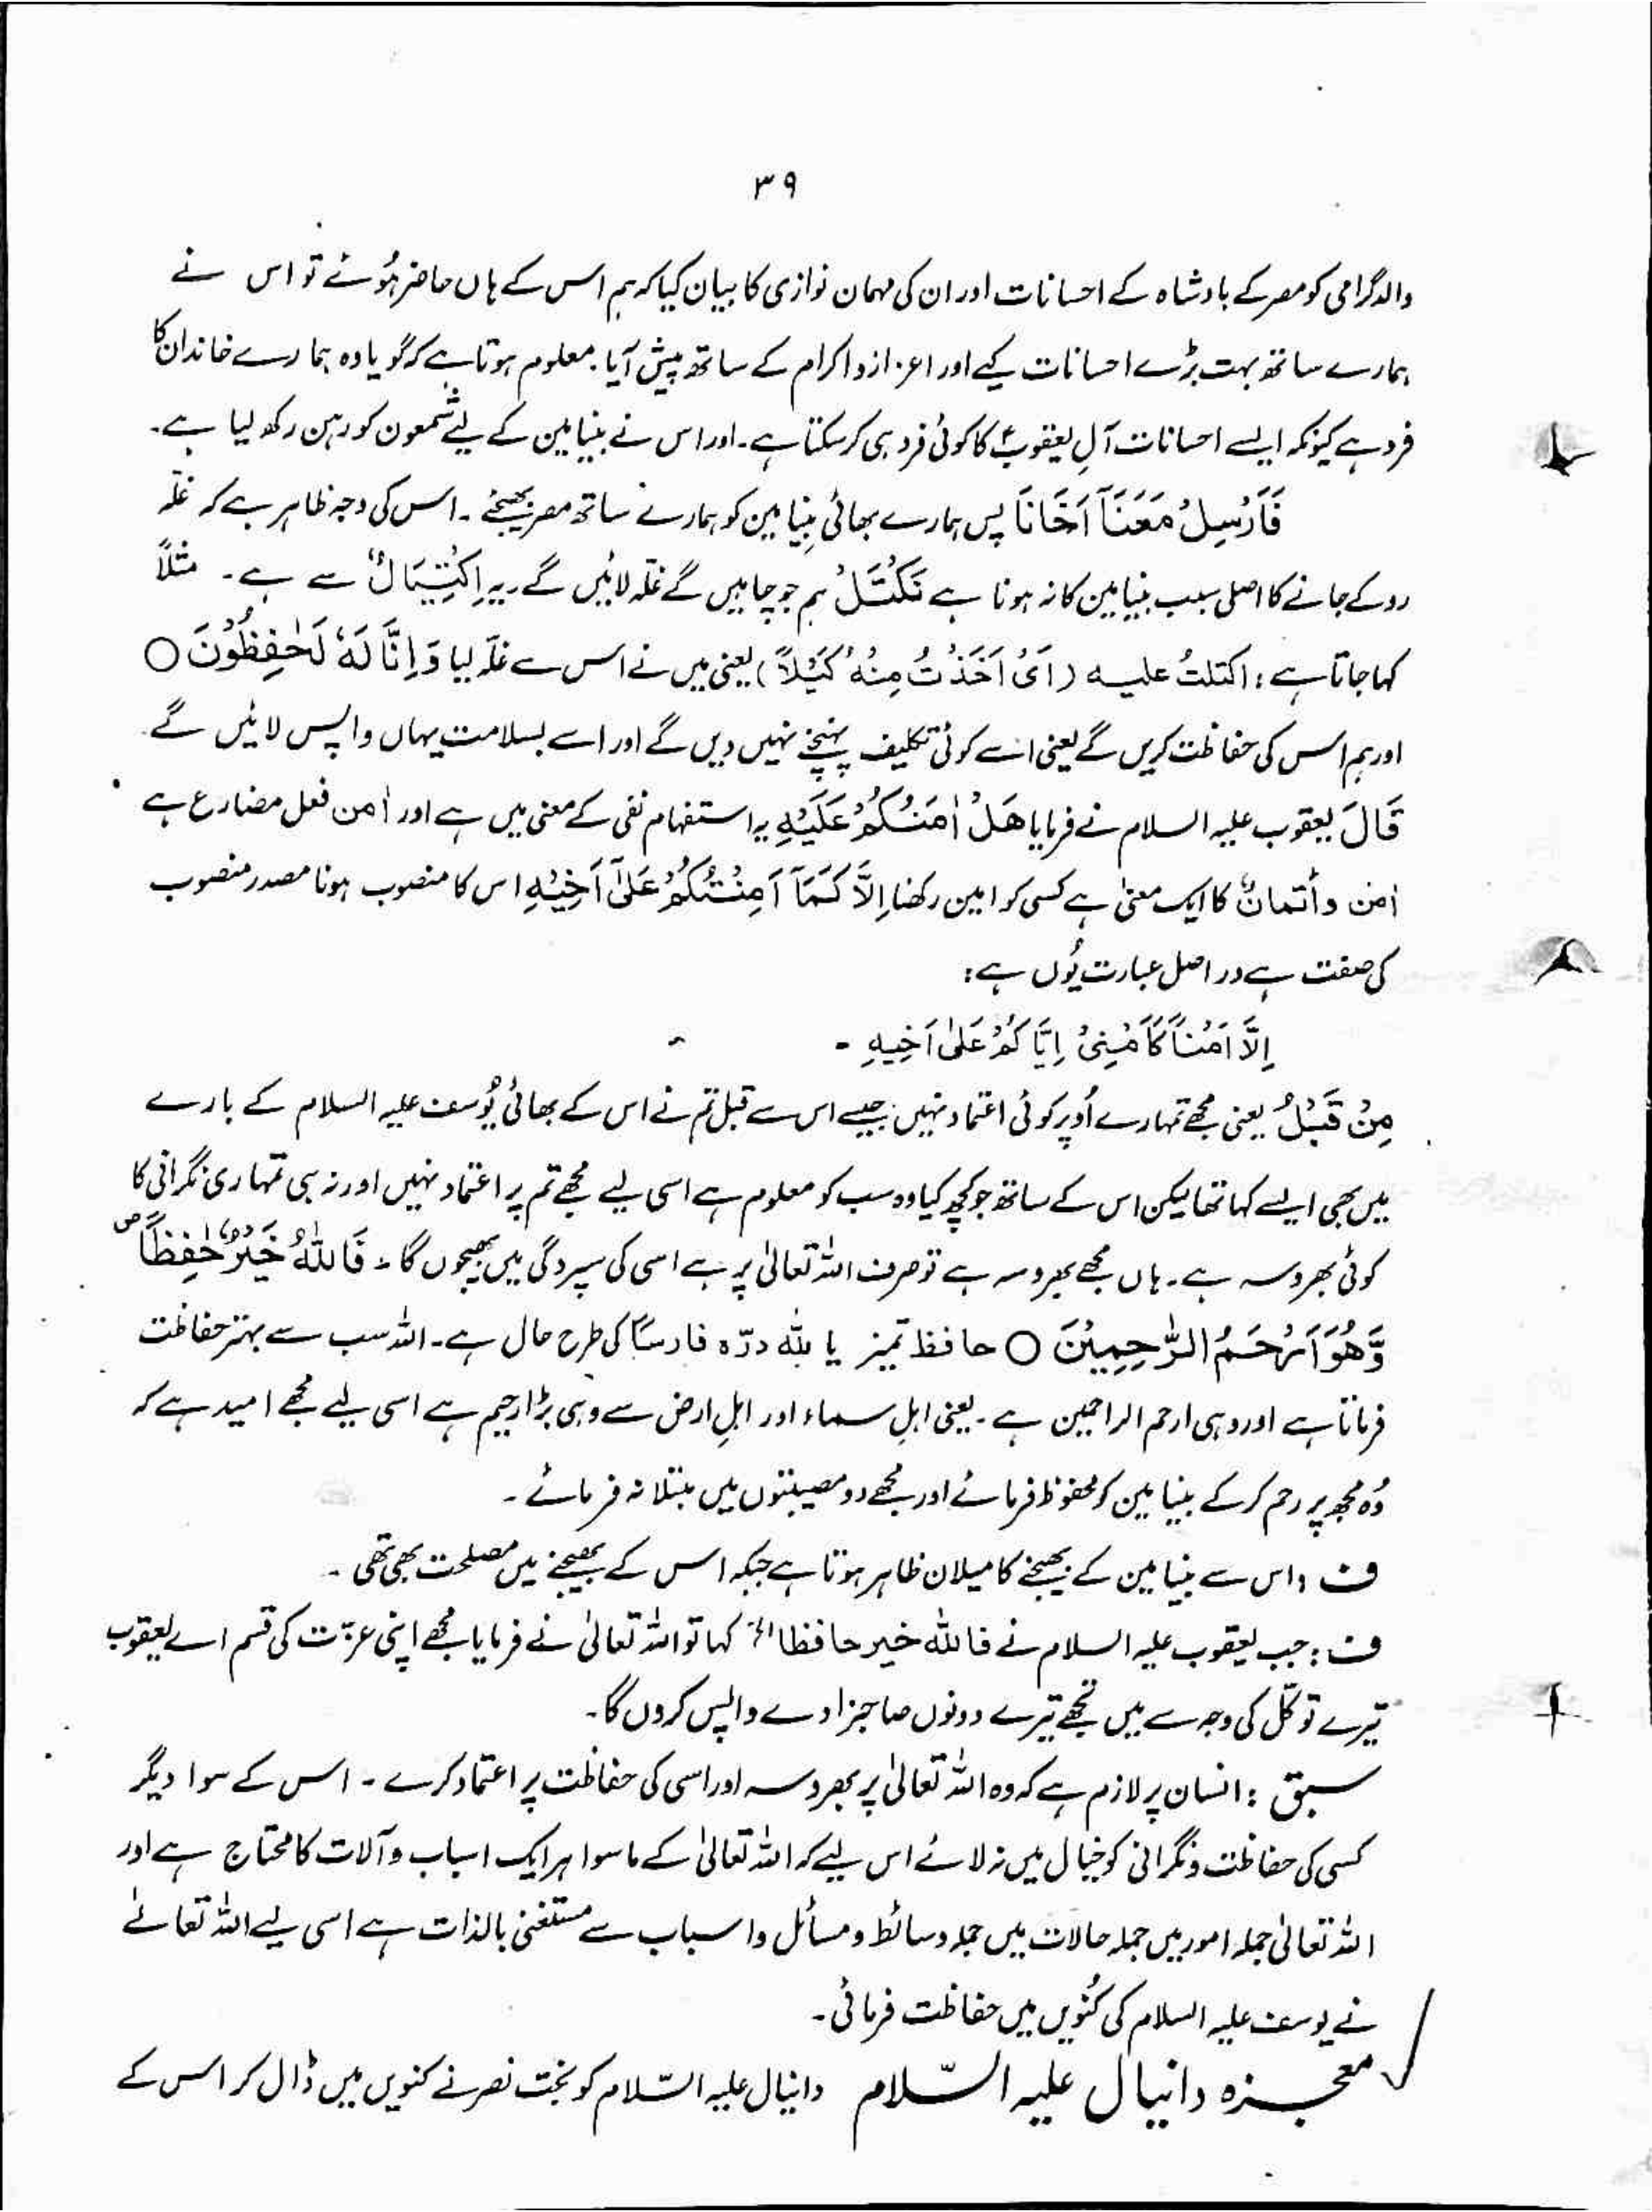 ۳۹
والد گرامی کو مصر کے بادشاہ کے احسانات اور ان کی مہمان نوازی کا بیان کیا کہ ہم اس کے ہاں حاضر ہُوئے تو اس نے
ہمارے ساتھ بہت بڑے احسانات کیے اور اعزاز و اکرام کے ساتھ پیش آیا۔ معلوم ہوتا ہے کہ گویا وہ ہمارے خاندان کا
فرد ہے کیونکہ ایسے احسانات آلِ یعقوبؑ کا کوئی فرد ہی کرسکتا ہے۔ اور اس نے بنیامین کے لیے شمعون کو رہن رکھ لیا ہے۔
فَاَرْسِلْ مَعَنَآ اَخَانَا پس ہمارے بھائی بنیامین کو ہمارے ساتھ مصر بھیجئے۔ اس کی وجہ ظاہر ہے کہ غلّہ
روکے جانے کا اصلی سبب بنیامین کا نہ ہونا ہے نَکْتَلْ ہم جو چاہیں گے غلّہ لائیں گے۔ یہ اِکْتِیَالٌ سے ہے۔ مثلاً
کہا جاتا ہے: اکتلتُ علیہ (اَیْ اَخَذْتُ مِنْہُ کَیْلًا) یعنی میں نے اس سے غلّہ لیا وَاِنَّا لَہٗ لَحٰفِظُوْنَ ○
اور ہم اس کی حفاظت کریں گے یعنی اسے کوئی تکلیف پہنچنے نہیں دیں گے اور اسے بسلامت یہاں واپس لائیں گے۔
قَالَ یعقوب علیہ السلام نے فرمایا ھَلْ اٰمَنُکُمْ عَلَیْہِ یہ استفہام نفی کے معنی میں ہے اور اٰمن فعل مضارع ہے
اٰمن و أتمانٌ کا ایک معنیٰ ہے کسی کو امین رکھنا اِلَّا کَمَآ اَمِنْتُکُمْ عَلٰٓی اَخِیْہِ اس کا منصوب ہونا مصدر منصوب
کی صفت ہے دراصل عبارت یُوں ہے:
اِلَّا اَمْنًا کَاَمْنِیْ اِیَّاکُمْ عَلٰی اَخِیہِ ۔
مِنْ قَبْلُ یعنی مجھے تمہارے اُوپر کوئی اعتماد نہیں جیسے اس سے قبل تم نے اس کے بھائی یُوسف علیہ السلام کے بارے
میں بھی ایسے کہا تھا لیکن اس کے ساتھ جو کچھ کیا وہ سب کو معلوم ہے اسی لیے مجھے تم پر اعتماد نہیں اور نہ ہی تمہاری نگرانی کا
کوئی بھروسہ ہے۔ ہاں مجھے بھروسہ ہے تو صرف اللہ تعالیٰ پر ہے اسی کی سپردگی میں بھیجوں گا۔ فَاللّٰہُ خَیْرٌ حٰفِظًا ص
وَّھُوَ اَرْحَمُ الرّٰحِمِیْنَ ○ حافظ تمیز یا للّٰہ درّہ فارسًا کی طرح حال ہے۔ اللہ سب سے بہتر حفاظت
فرماتا ہے اور وہی ارحم الراحمین ہے۔ یعنی اہلِ سماء اور اہلِ ارض سے وہی بڑا رحیم ہے اسی لیے مجھے امید ہے کہ
وُہ مجھ پر رحم کر کے بنیامین کو محفوظ فرمائے اور مجھے دو مصیبتوں میں مبتلا نہ فرمائے۔
ف: اس سے بنیامین کے بھیجنے کا میلان ظاہر ہوتا ہے جبکہ اس کے بھیجنے میں مصلحت بھی تھی۔
ف: جب یعقوب علیہ السلام نے فاللّٰہ خیر حافظا الخ کہا تو اللہ تعالیٰ نے فرمایا مجھے اپنی عزّت کی قسم اے یعقوب
تیرے توکّل کی وجہ سے میں تجھے تیرے دونوں صاجزادے واپس کروں گا۔
سبق: انسان پر لازم ہے کہ وہ اللہ تعالیٰ پر بھروسہ اور اسی کی حفاظت پر اعتماد کرے۔ اس کے سوا دیگر
کسی کی حفاظت و نگرانی کو خیال میں نہ لائے اس لیے کہ اللہ تعالیٰ کے ماسوا ہر ایک اسباب و آلات کا محتاج ہے اور
اللہ تعالیٰ جملہ امور میں جملہ حالات میں جملہ وسائط و مسائل و اسباب سے مستغنی بالذات ہے اسی لیے اللہ تعالےٰ
نے یوسف علیہ السلام کی کُنویں میں حفاظت فرمائی۔
معجزہ دانیال علیہ السّلام دانیال علیہ السّلام کو بخت نصر نے کنویں میں ڈال کر اس کے